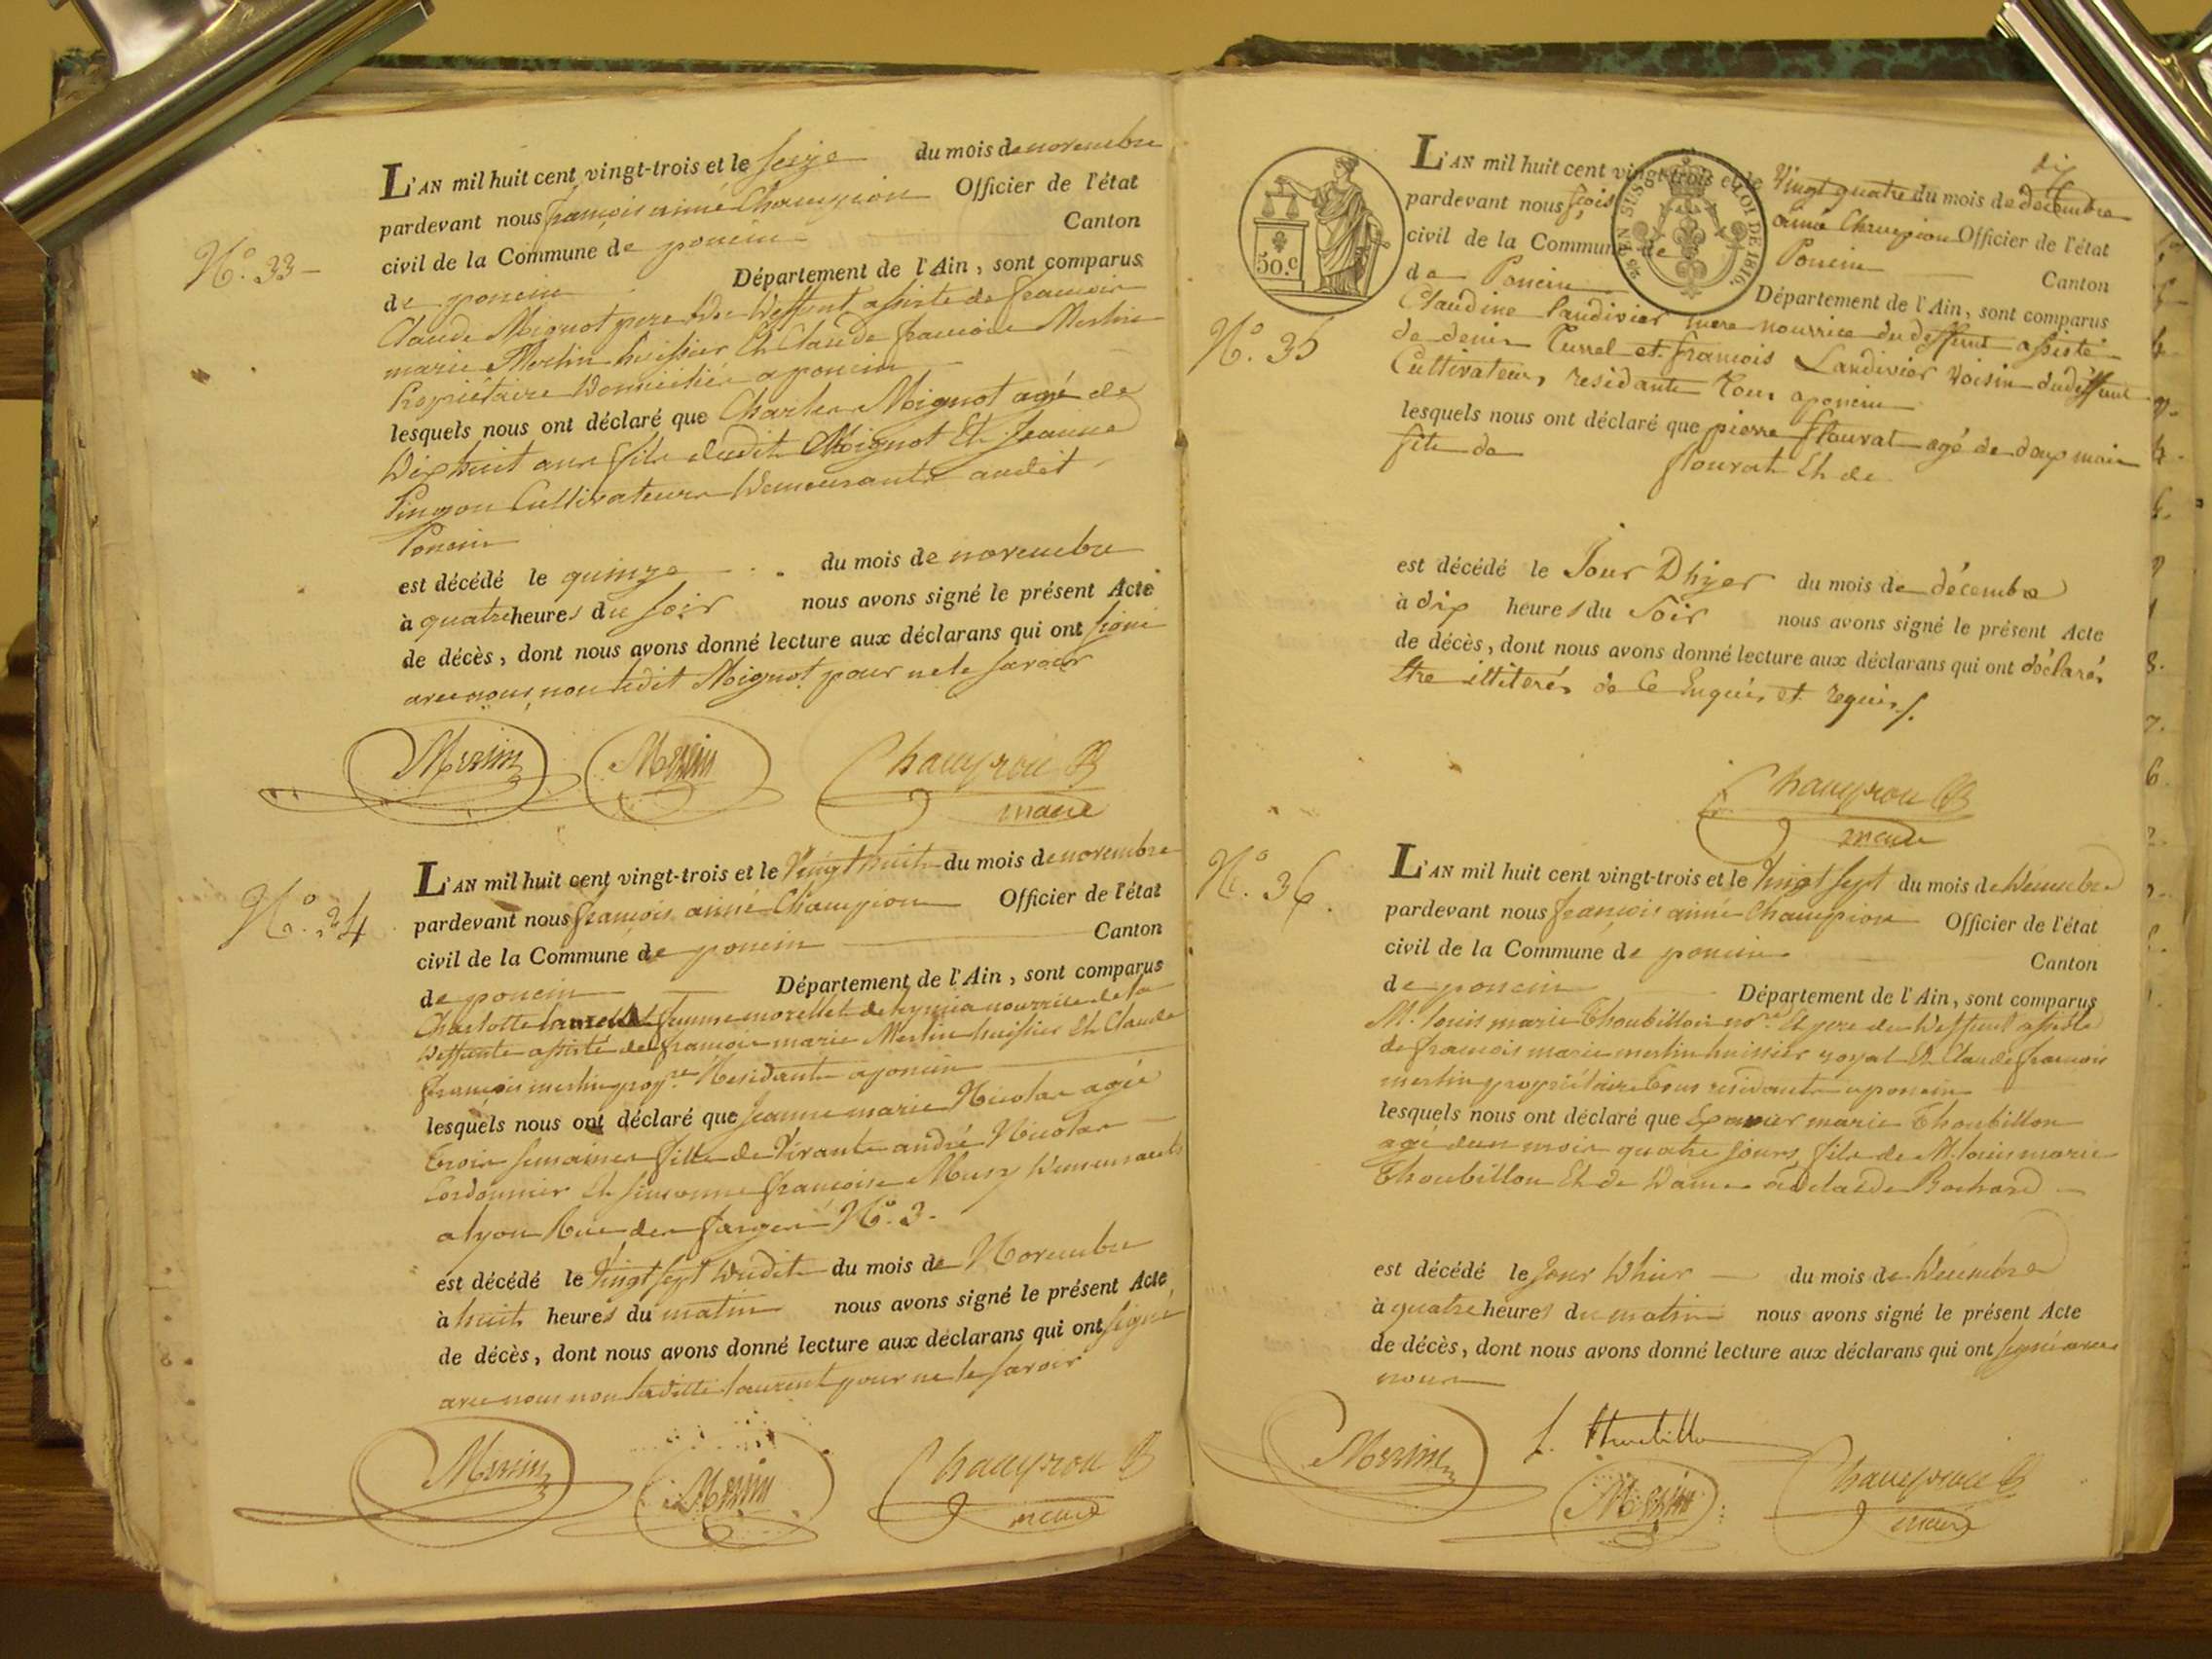 N.o 33
L'AN mil huit cent vingt-trois et le seize du mois de novembre
pardevant nous françois aimé Champion Officier de l'état
civil de la Commune de poncin Canton
de poncin Département de l'Ain, sont comparus
Claude Mignot pere du deffunt assisté de françois
marie Merlin huissier Et Claude françois Merlin
Propriétaire domiciliés a poncin
lesquels nous ont déclaré que Charles Mignot agé de
dix huit ans fils dudit Mignot Et jeanne
Pingon Cultivateurs demeurants audit
Poncin
est décédé le quinze du mois de novembre
à quatre heures du soir nous avons signé le présent Acte
de décès, dont nous avons donné lecture aux déclarans qui ont signé
avec nous, non ledit Mignot pour ne le savoir
Merlin Merlin Champion
maire
N.o 34
L'AN mil huit cent vingt-trois et le Vingt huit du mois de novembre
pardevant nous françois aimé Champion Officier de l'état
civil de la Commune de poncin Canton
de poncin Département de l'Ain, sont comparus
Charlotte femme morellet nourrice de la
deffunte assisté de françois marie Merlin huissier Et Claude
françois merlin prop.re Residants a poncin
lesquels nous ont déclaré que jeanne marie Nicolas agée
trois semaines fille de Vivante andré Nicolas
Cordonnier Et françoise Mury demeurants
a lyon Rue des farges N.o 3.
est décédé le Vingt sept dudit du mois de Novembre
à huit heures du matin nous avons signé le présent Acte
de décès, dont nous avons donné lecture aux déclarans qui ont signé
avec nous non laditte laurent pour ne le savoir
Merlin Merlin Champion
maire
50.c
AN SIS LOI DE 1816.
N.o 35
dix
L'AN mil huit cent vingt-trois et le Vingt quatre du mois de décembre
pardevant nous fçois aimé Champion Officier de l'état
civil de la Commune de Poncin Canton
de Poncin Département de l'Ain, sont comparus
Claudine Landivier mere nourrice du deffunt assisté
de denis Turrel et françois Landivier Voisin du deffunt
Cultivateurs residants Tous a poncin
lesquels nous ont déclaré que pierre flourat agé de deux mois
fils de flourat Et de
est décédé le Jour D'hyer du mois de décembre
à dix heures du Soir nous avons signé le présent Acte
de décès, dont nous avons donné lecture aux déclarans qui ont déclarés
Etre illiterés de Ce Enquis et requis
Champion
maire
N.o 36.
L'AN mil huit cent vingt-trois et le Vingt sept du mois de décembre
pardevant nous françois aimé Champion Officier de l'état
civil de la Commune de poncin Canton
de poncin Département de l'Ain, sont comparus
M.r louis marie Thoubillon no.re Et pere du deffunt assisté
de françois marie merlin huissier royal Et Claude françois
merlin propriétaire tous residants a poncin
lesquels nous ont déclaré que marie Thoubillon
agé d'un mois quatre jours, fils de M. louis marie
Thoubillon Et de dame adelaide Rochard
est décédé le jour d'hier du mois de décembre
à quatre heures du matin nous avons signé le présent Acte
de décès, dont nous avons donné lecture aux déclarans qui ont signé avec
nous
Merlin L. Thoubillon
Merlin Champion
maire